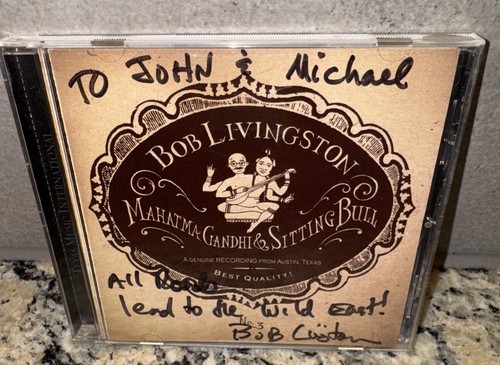 TO JOHN & Michael
BOB LIVINGSTON
MAHATMA GANDHI & SITTING BULL
A GENUINE RECORDING FROM AUSTIN, TEXAS
BEST QUALITY!
All Roads
lead to the Wild East!
No. 3
BOB
MUSIC INTERNATIONAL